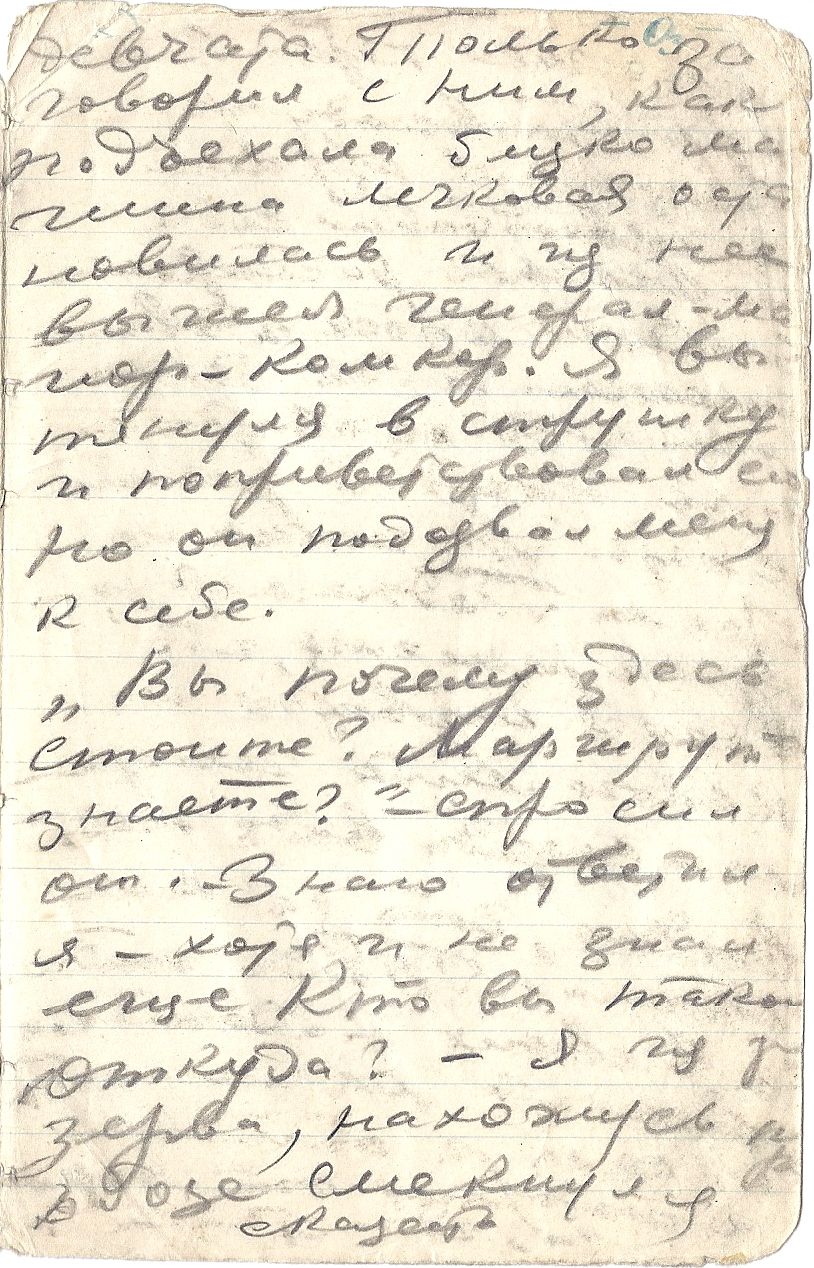 девчата. Только за
говорил с ним, как
подъехала близко ма
шина легковая оста
новилась и из нее
вышел генерал-ма
йор-комкор. Я вы
тянулся в струнку
и поприветствовал его
но он подозвал меня
к себе.
„Вы почему здесь
стоите? Маршрут
знаете?" – спросил
он. – Знаю ответил
я – хотя и не знал
еще. Кто вы такой
откуда? – Я из р
зерва, нахожусь пр
обозе смекнул я
сказать